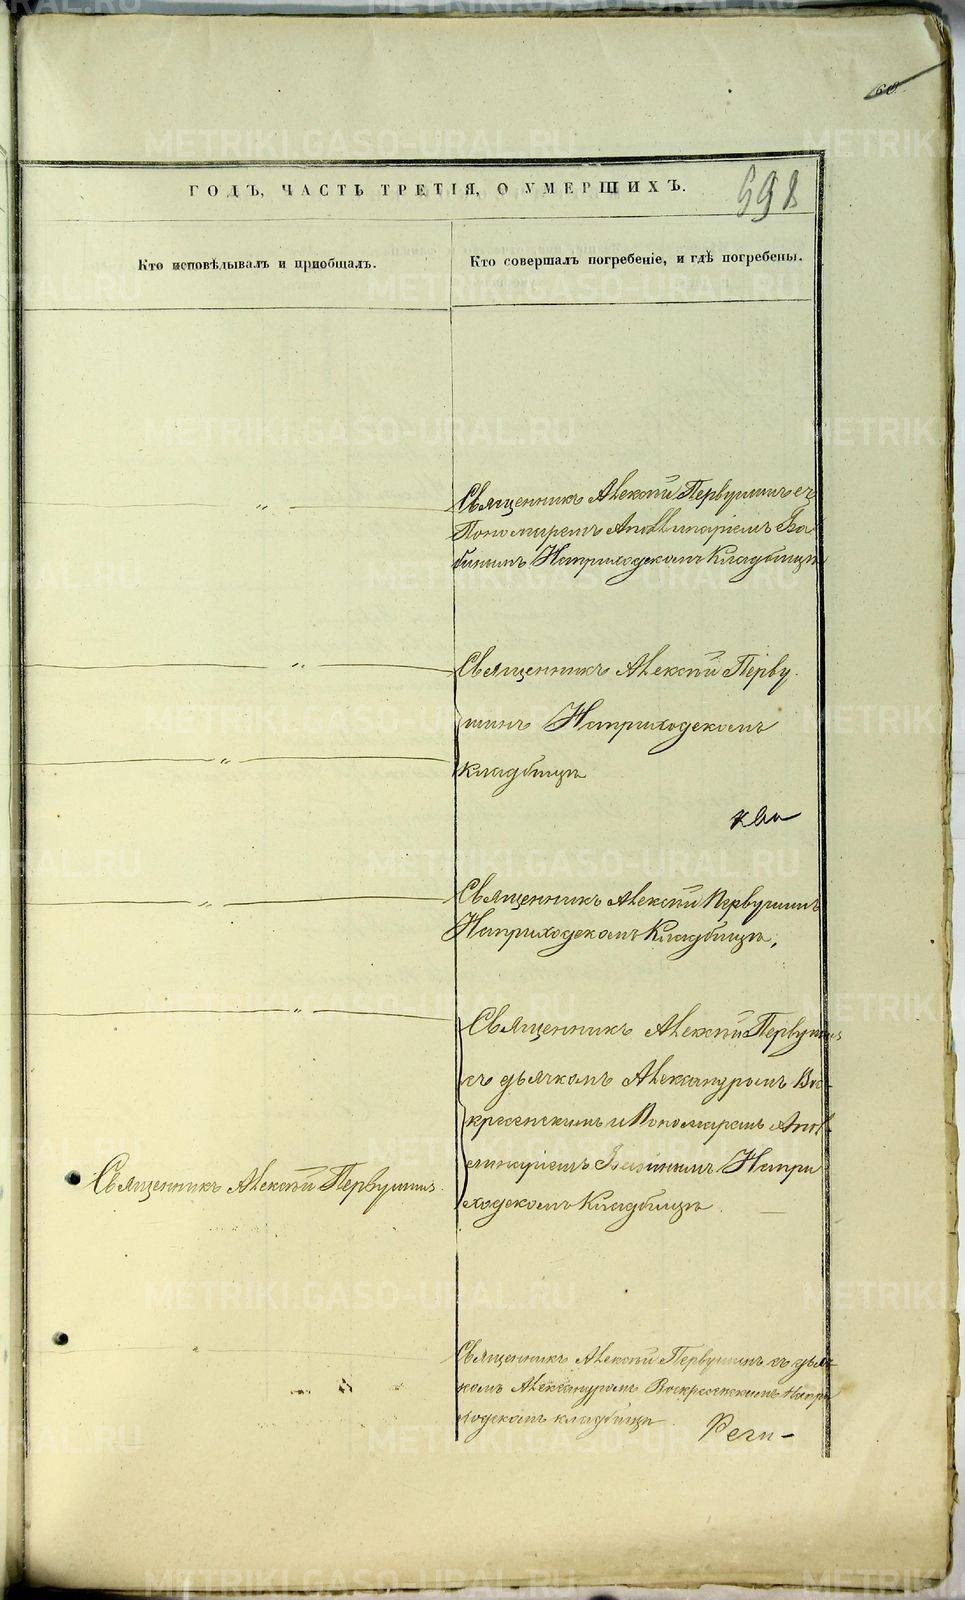 698
ГОДЪ, ЧАСТЬ ТРЕТІЯ, О УМЕРШИХЪ.
Кто исповѣдывалъ и пріобщалъ.
Кто совершалъ погребеніе, и гдѣ погребены.
Священникъ Алексѣй Первушинъ съ
Пономаремъ Аполлинаріемъ Ба
бинымъ На приходскомъ Кладбищѣ
Священникъ Алексѣй Перву
шинъ На приходскомъ
кладбищѣ
Священникъ Алексѣй Первушинъ
На приходскомъ Кладбищѣ,
Священникъ Алексѣй Первушинъ
съ дьячкомъ Александромъ Вос
кресенскимъ и Пономаремъ Апол
линаріемъ На при
ходскомъ Кладбищѣ
Священникъ Алексѣй Первушинъ
Священникъ Алексѣй Первушинъ съ дьяч
комъ Александромъ Воскресенскимъ На при
ходскомъ кладбищѣ
METRIKI.GASO-URAL.RU